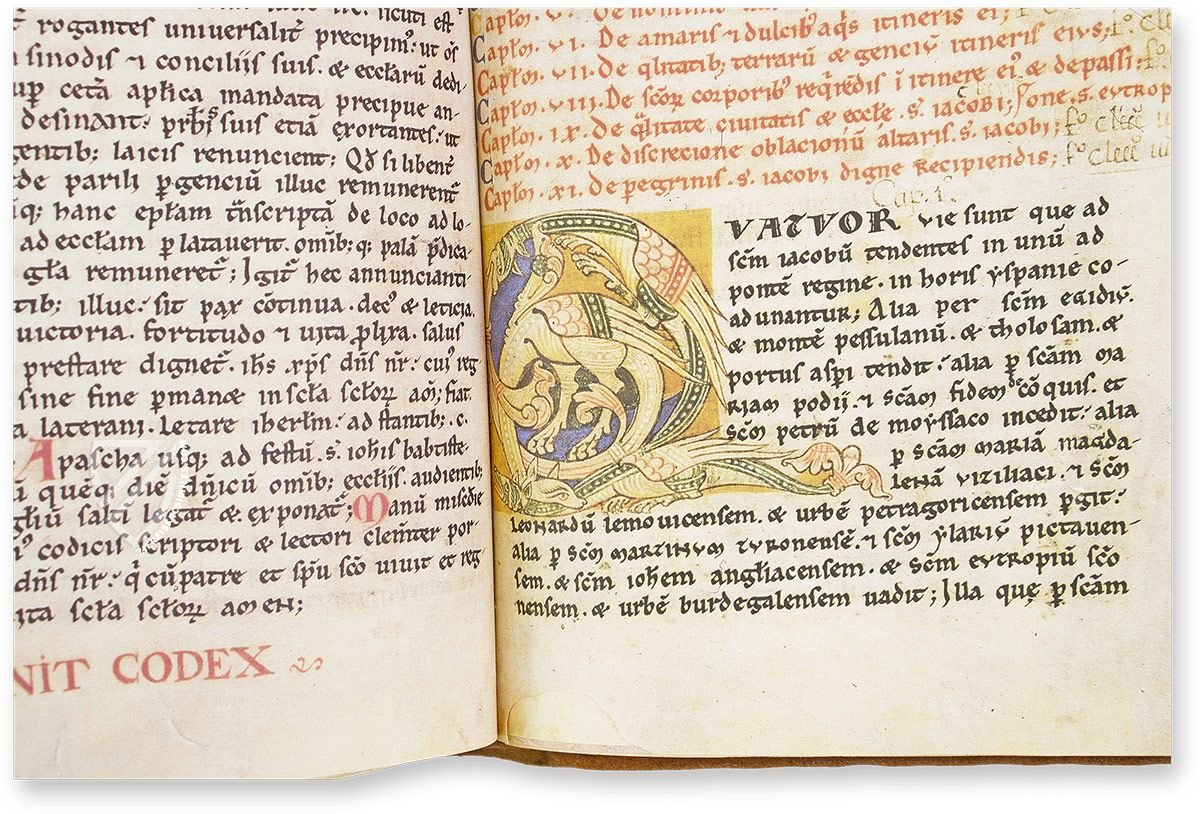 rogantes uniuersalit̄ precipim᷒: ut
sinodis ⁊ conciliis suis. & eccłarū dedi-
cetā apłica mandata precipue an-
desinant: prb̄i suis etiā exortantes: ut
laicis renuncient; Qđ si libent᷒
de parili ꝑgenciū illuc remunerent᷒
hanc epłam t̄nscriptā de loco ad lo-
ad eccłam ꝑlatauerit. omīb; q; palā p̄dica
gła remuneret᷒; Igit᷒ hec annuncianti-
illuc: sit pax cōtinua. dec᷒ & leticia.
uictoria. fortitudo ⁊ uita ꝓlixa. salus
prestare dignet᷒. ihs̄ xp̄s dn̄s nr̄: cui᷒ reg
sine fine ꝑmane in scła scłoꝝ am̄; fiat.
laterani. Letare iherłm: ad stantib;. c.
A pascha usq; ad festū. s. ioħis babtiste
quēq; diē dn̄icū omīb; eccłiis. audientib;
saltī legat᷒ &. exponat᷒; Manū misedie
codicis scriptori & lectori clem̄ter por-
dn̄s nr̄: q̄ cū patre et sp̄u sc̄o uiuit et reg
scła scłoꝝ amen;
NIT CODEX
Capłm. VI. De amaris ⁊ dulcib᷒ aq̄s itineris ei᷒;
Capłm. VII. De q̄litatib; terrarū & genciū itineris eius;
Capłm. VIII. De sc̄oꝝ corporib᷒ req̄rēdis ī itinere ei᷒ & de passi:
Capłm. IX. De q̄litate ciuitatis & eccłe. s. iacobi; one. s. eutrop
Capłm. X. De discrecione oblacionū altaris. s. iacobi;
Capłm. XI. De ꝑegrinis. s. iacobi digne recipiendis;
Cap. 1.
QVATVOR vie sunt que ad
sc̄m iacobū tendentes in unū ad
pontē regine. in horis yspanie co-
adunantur; Alia per sc̄m egidiū.
& montē pessulanū. & tholosam. &
portus aspi tendit: alia ꝑ sc̄am ma
riam podii. ⁊ sc̄am fidem de cōquis. et
sc̄m petrū de moyssaco incedit: alia
ꝑ sc̄am mariā magda-
lenā viziliaci. ⁊ sc̄m
leonardū lemouicensem. & urbē petragoricensem ꝑgit:
alia ꝑ sc̄m martinum turonensē. ⁊ sc̄m ylariū pictauen-
sem. & sc̄m iohem angliacensem. & sc̄m eutropiū sc̄o
nensem. & urbē burdegalensem uadit; Illa quę ꝑ sc̄am